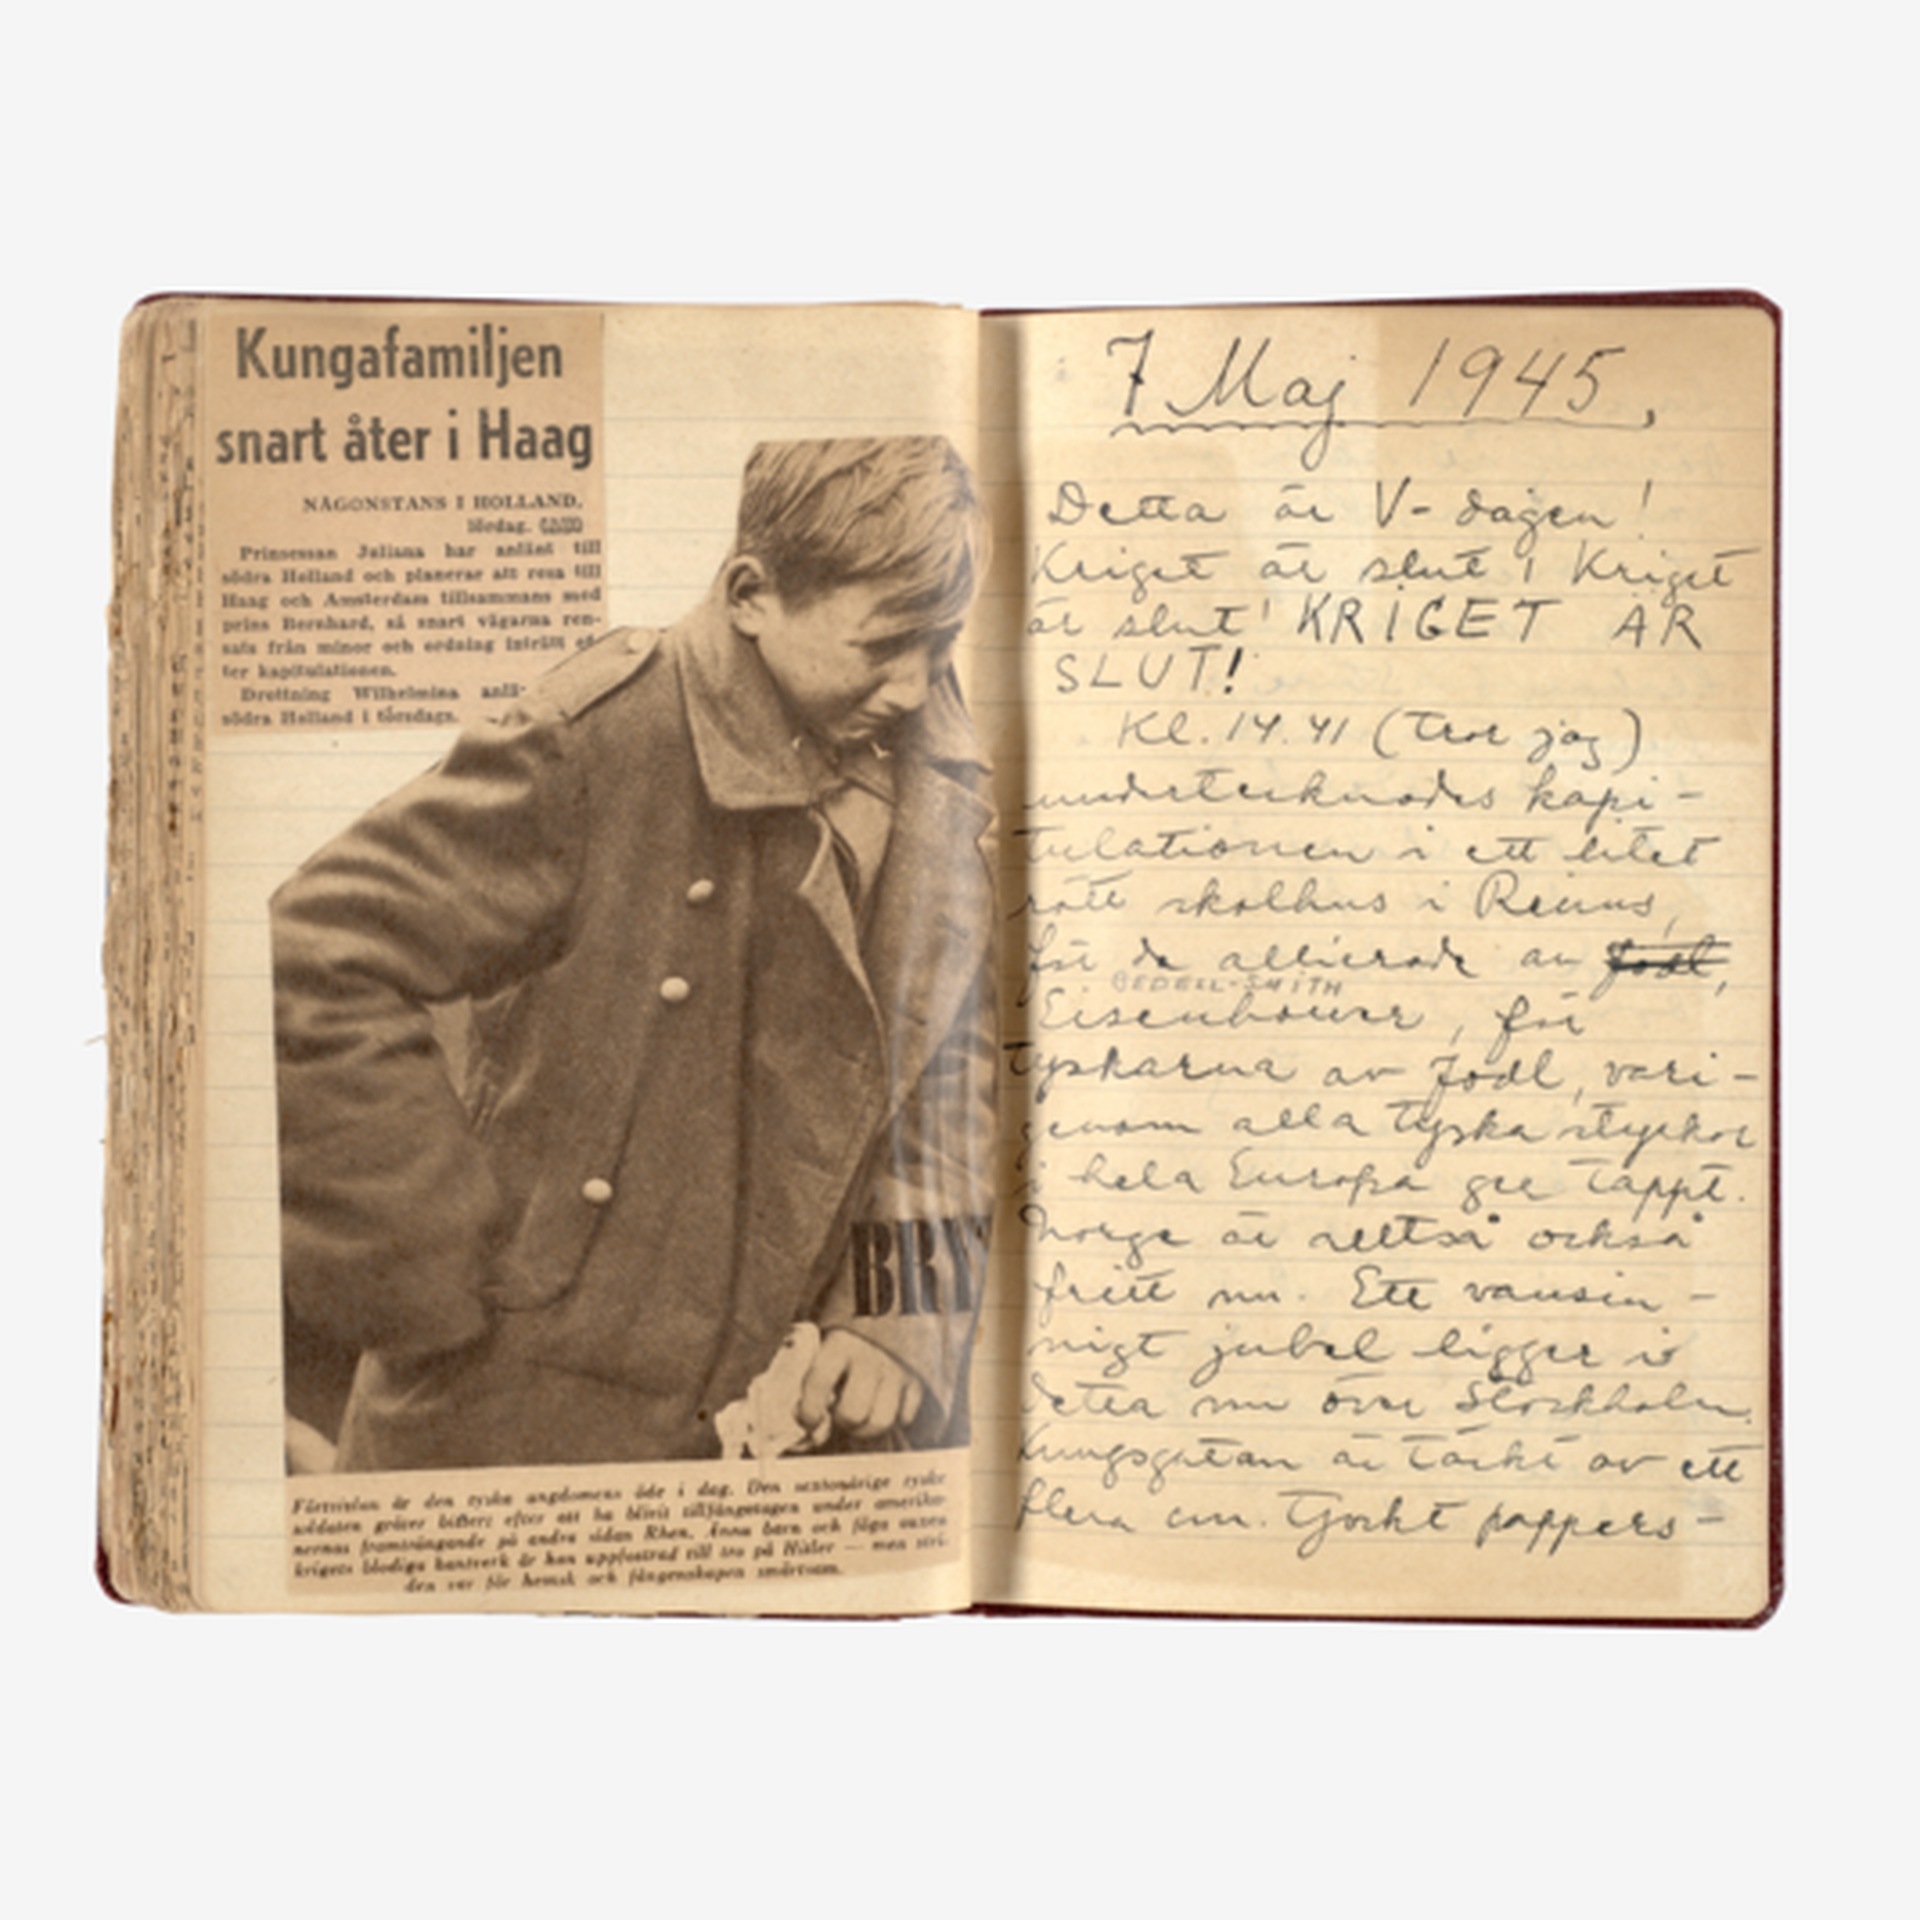 Kungafamiljen
snart åter i Haag
NÅGONSTANS I HOLLAND,
lördag.
Prinsessan Juliana har anlänt till
södra Holland och planerar att resa till
Haag och Amsterdam tillsammans med
prins Bernhard, så snart vägarna ren-
sats från minor och ordning inträtt ef-
ter kapitulationen.
Drottning Wilhelmina anlä-
södra Holland i torsdags.
BRY
Förtvivlan är den tyska ungdomens öde i dag. Den sextonårige tyske
soldaten gråter bittert efter att ha blivit tillfångatagen under amerika-
nernas framträngande på andra sidan Rhen. Ännu barn och föga vuxen
krigets blodiga hantverk är han uppfostrad till tro på Hitler — men stri-
den var för hemsk och fångenskapen smärtsam.
7 Maj 1945.
Detta är V-dagen!
Kriget är slut! Kriget
är slut! KRIGET ÄR
SLUT!
Kl. 14.41 (tror jag)
undertecknades kapi-
tulationen i ett litet
rött skolhus i Reims,
för de allierade av Jodl,
BEDELL-SMITH
Eisenhower, för
tyskarna av Jodl, vari-
genom alla tyska styrkor
i hela Europa ger tappt.
Norge är alltså också
fritt nu. Ett vansin-
nigt jubel ligger i
detta nu över Stockholm.
Kungsgatan är täckt av ett
flera cm. tjockt pappers-